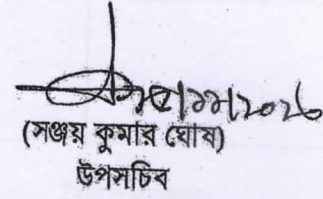 (সঞ্জয় কুমার ঘোষ)
উপসচিব